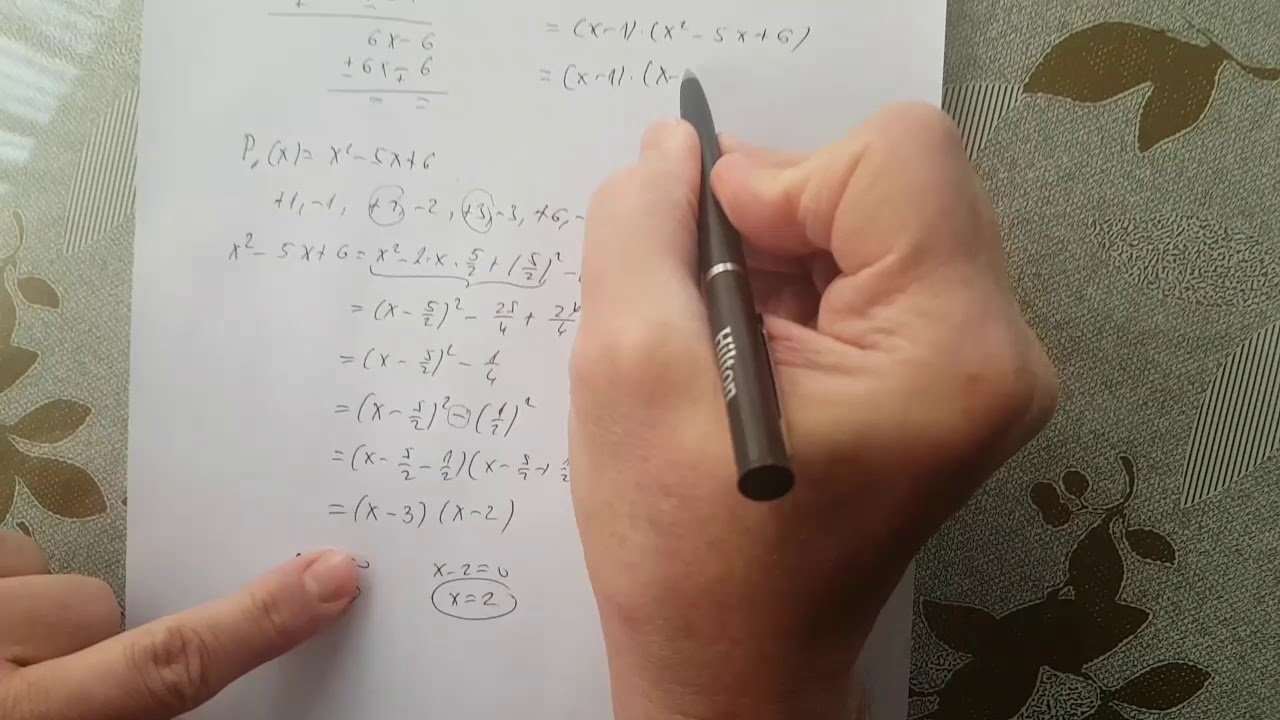 6x - 6
± 6x ∓ 6
= =
= (x-1)·(x² - 5x + 6)
= (x-1)·(x-
P₁(x) = x² - 5x + 6
+1, -1, +2, -2, +3, -3, +6, -
x² - 5x + 6 = x² - 2·x·5/2 + (5/2)² -
= (x - 5/2)² - 25/4 + 24/4
= (x - 5/2)² - 1/4
= (x - 5/2)² - (1/2)²
= (x - 5/2 - 1/2)(x - 5/2 + 1/2
= (x - 3)(x - 2)
x - 2 = 0
x = 2
Hilton